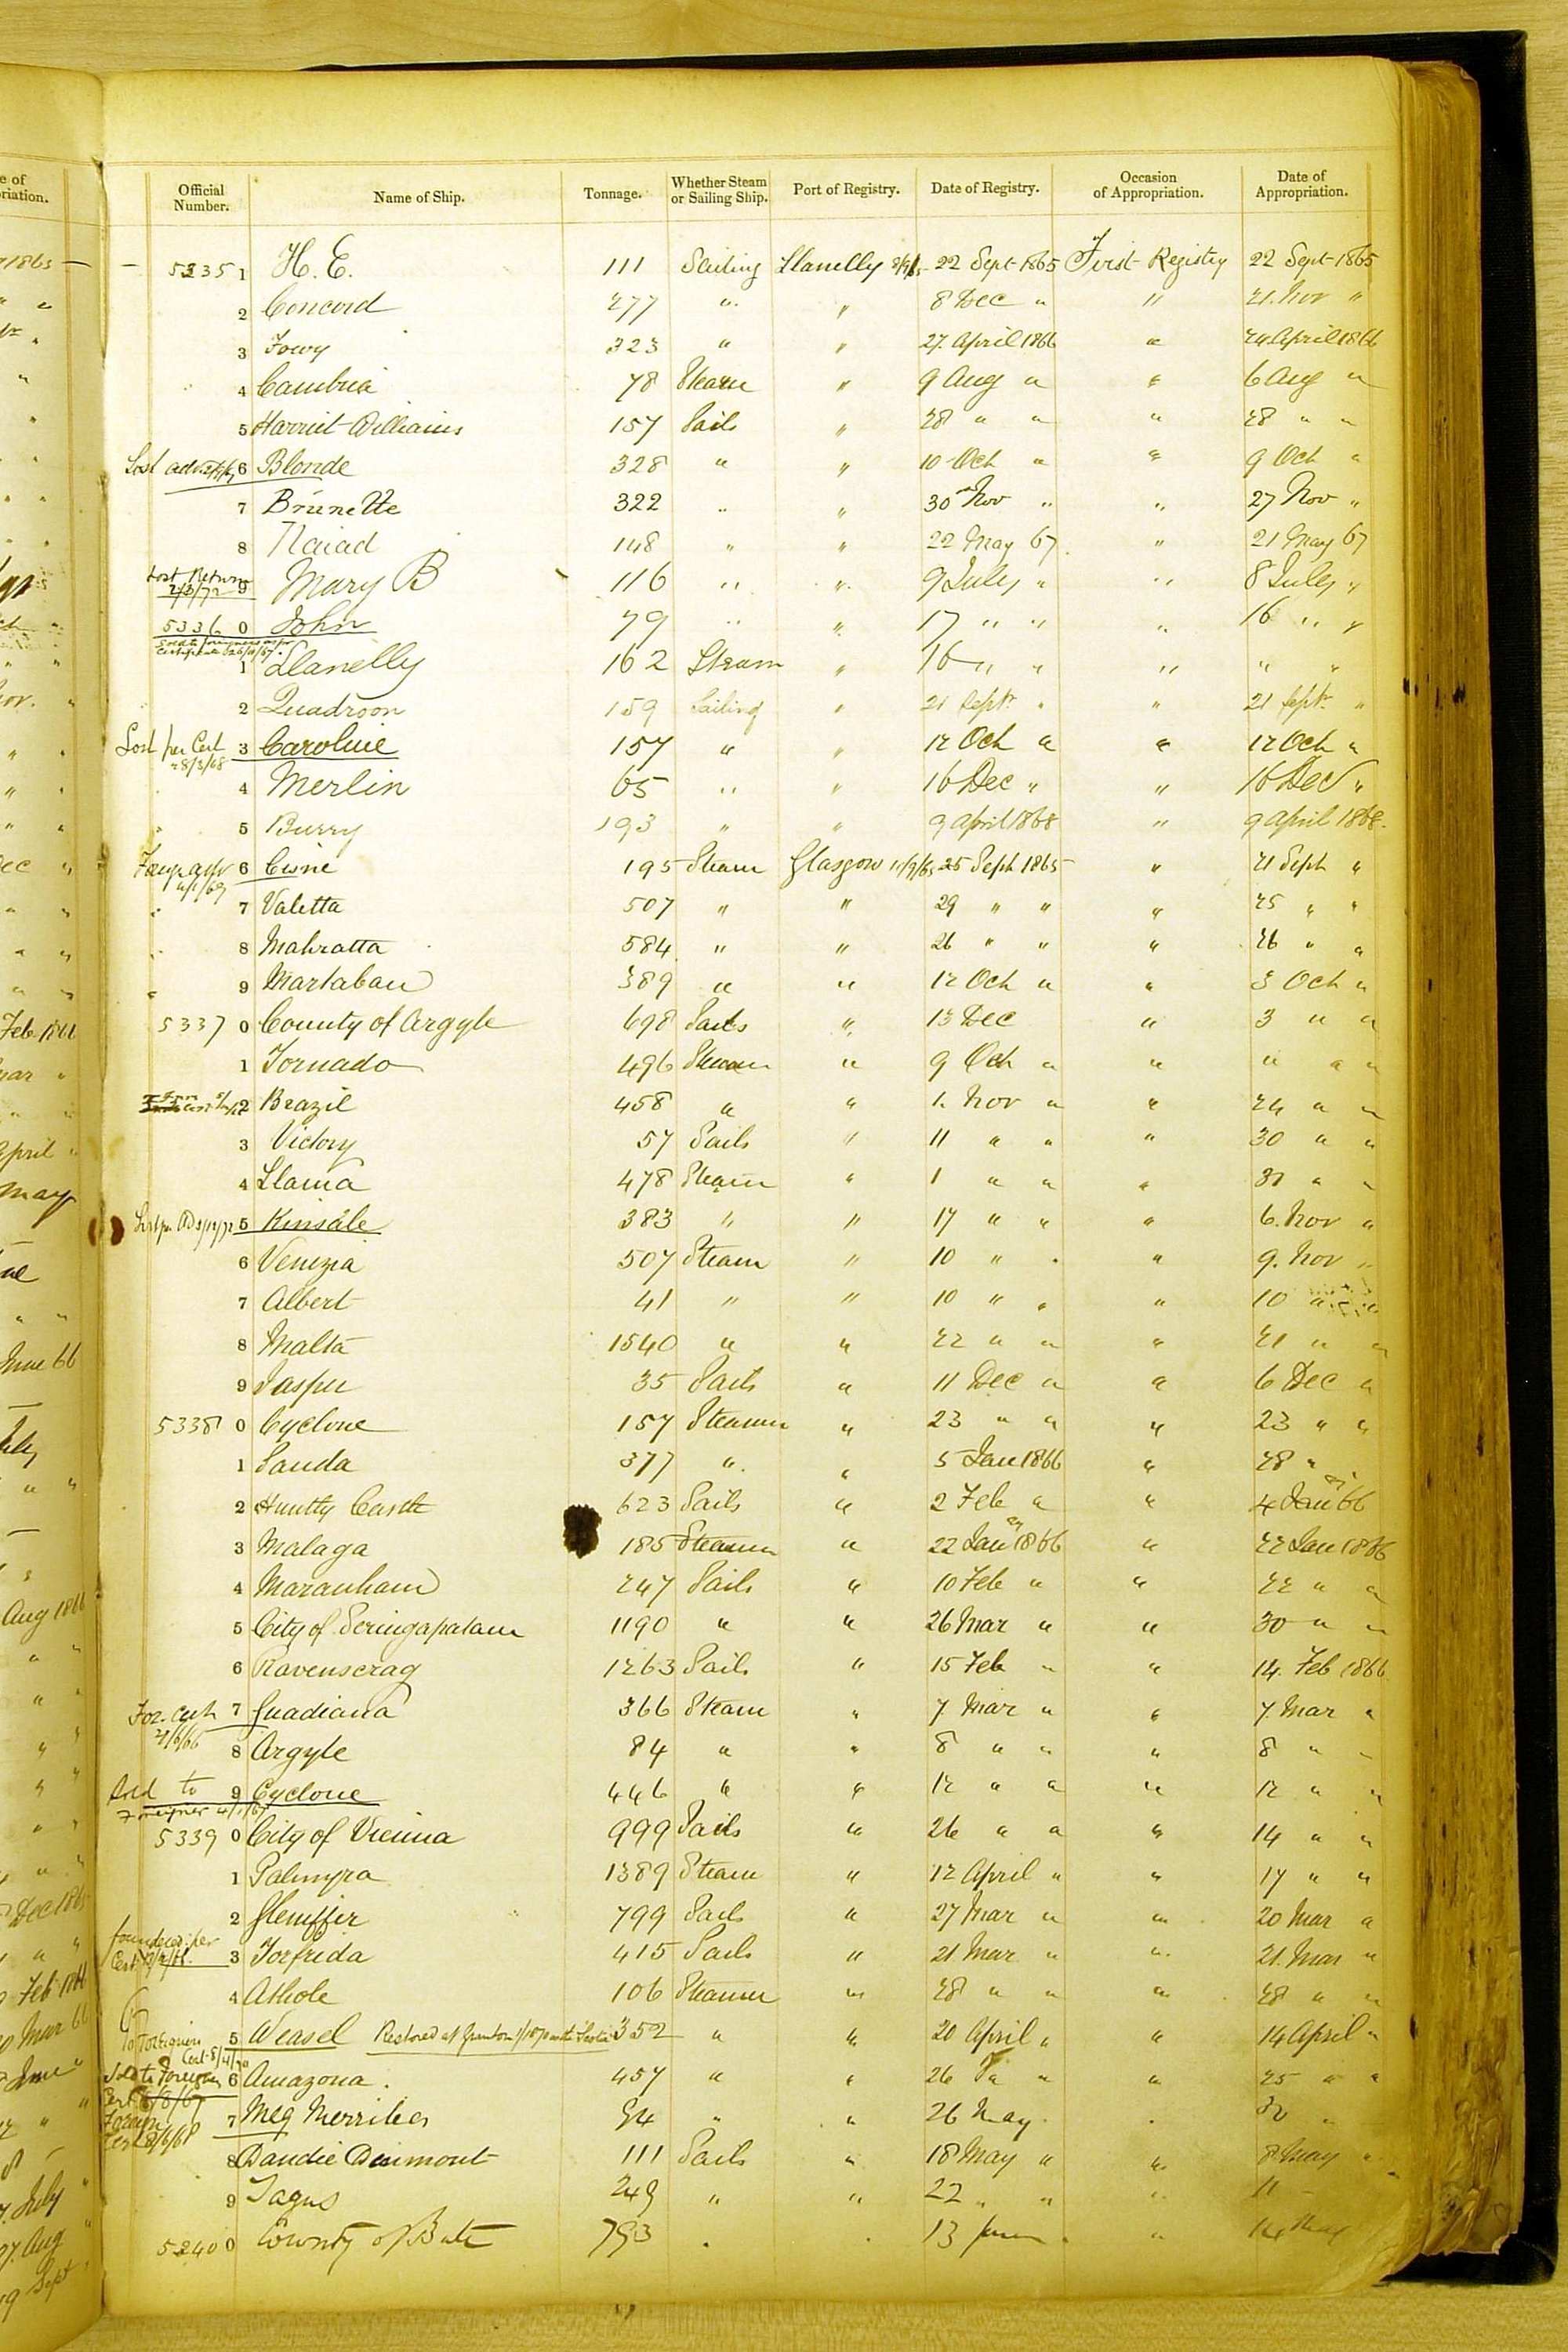 Official Number. Name of Ship. Tonnage. Whether Steam or Sailing Ship. Port of Registry. Date of Registry. Occasion of Appropriation. Date of Appropriation.
5335 1 H. E. 111 Sailing Llanelly 22 Sept 1865 First Registry 22 Sept 1865
2 Concord 277 " " 8 Dec " " 21. Nov "
3 Fowy 323 " " 27. April 1866 " 24 April 1866
4 Cambria 78 Steam " 9 Aug " " 6 Aug "
5 Harriet Williams 157 Sails " 28 " " " 28 " "
Lost 6 Blonde 328 " " 10 Oct " " 9 Oct "
7 Brunette 322 " " 30 Nov " " 27 Nov "
8 Naiad 148 " " 22 May 67 " 21 May 67
Lost Return 2/3/72 9 Mary B 116 " " 9 July " " 8 July "
5336 0 John 79 " " 17 " " " 16 " "
1 Llanelly 162 Steam " 16 " " " " "
2 Quadroon 159 Sailing " 21 Sept. " " 21 Sept. "
Lost per Cert 28/3/68 3 Caroline 157 " " 12 Oct " " 12 Oct "
4 Merlin 65 " " 16 Dec " " 16 Dec "
5 Burry 193 " " 9 April 1868 " 9 April 1868.
6 Cisne 195 Steam Glasgow 25 Sept 1865 " 21 Sept "
7 Valetta 507 " " 29 " " " 25 " "
8 Mahratta 584 " " 26 " " " 26 " "
9 Martaban 389 " " 12 Oct " " 3 Oct "
5337 0 County of Argyle 698 Sails " 13 Dec " 3 " "
1 Tornado 496 Steam " 9 Oct " " " " "
2 Brazil 458 " " 1. Nov " " 24 " "
3 Victory 57 Sails " 11 " " " 30 " "
4 Llama 478 Steam " 1 " " " 31 " "
5 Kinsale 383 " " 17 " " " 6. Nov "
6 Venezia 507 Steam " 10 " " " 9. Nov "
7 Albert 41 " " 10 " " " 10 " "
8 Malta 1540 " " 22 " " " 21 " "
9 Jasper 35 Sails " 11 Dec " " 6 Dec "
5338 0 Cyclone 157 Steamer " 23 " " " 23 " "
1 Sanda 377 " " 5 Jan 1866 " 28 "
2 Huntly Castle 623 Sails " 2 Feb " " 4 Jany 66
3 Malaga 185 Steamer " 22 Jany 1866 " 22 Jan 1866
4 Maranham 247 Sails " 10 Feb " " 22 " "
5 City of Seringapatam 1190 " " 26 Mar " " 30 " "
6 Ravenscrag 1263 Sails " 15 Feb " " 14. Feb 1866
For. Cert 21/6/66 7 Guadiana 366 Steam " 7 Mar " " 7. Mar "
8 Argyle 84 " " 8 " " " 8 " "
Sold to Foreigner 9 Cyclone 446 " " 12 " " " 12 " "
5339 0 City of Vienna 999 Sails " 26 " " " 14 " "
1 Palmyra 1389 Steam " 12 April " " 17 " "
2 Gleniffer 799 Sails " 27 Mar " " 20 Mar "
foundered per Cert 3 Torfrida 415 Sails " 21 Mar " " 21. Mar "
4 Athole 106 Steamer " 28 " " " 28 " "
To Foreigners Cert 5 Weasel Restored at 352 " " 20 April " " 14 April "
Sold to Foreigner 6 Amazona. 457 " " 26 " " " 25 " "
Foreign Cert 7 Meg Merrilies 94 " " 26 May
8 Dandie Dinmont 111 Sails " 18 May " " 8 May "
9 Tagus 249 " " 22 " " " 11
52400 County of Bute 793 13 June "